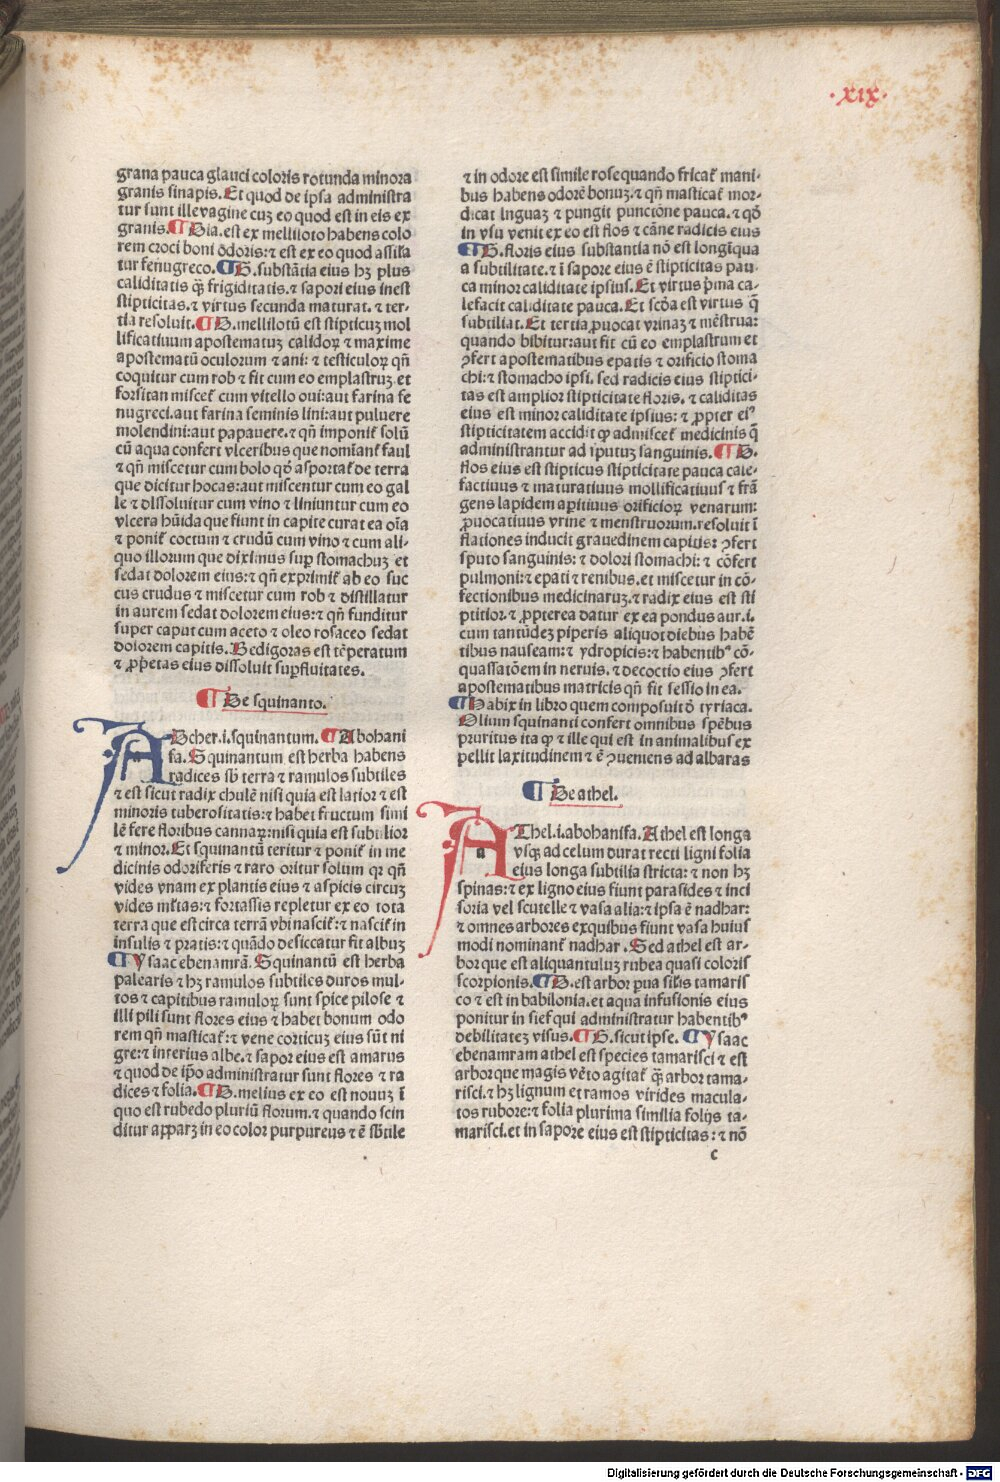 ·xix·
grana pauca glauci coloris rotunda minora
granis sinapis. Et quod de ipsa administra
tur sunt ille vagine cuȝ eo quod est in eis ex
granis. ¶ Dia. est ex melliloto habens colo
rem croci boni odoris: ⁊ est ex eo quod assila
tur fenugreco. ¶ G. substãtia eius hȝ plus
caliditatis q̃ȝ frigiditatis. ⁊ sapori eius inest
stipticitas. ⁊ virtus secunda maturat. ⁊ ter-
tia resoluit. ¶ B. mellilotũ est stipticuȝ mol
lificatiuum apostematuȝ calidoꝝ ⁊ maxime
apostematũ oculorum ⁊ ani: ⁊ testiculoꝝ qñ
coquitur cum rob ⁊ fit cum eo emplastruȝ. et
forsitan miscet̃ cum vitello oui: aut farina fe
nugreci. aut farina seminis lini: aut puluere
molendini: aut papauere. ⁊ qñ imponit̃ solũ
cũ aqua confert vlceribus que nomĩant̃ faul
⁊ qñ miscetur cum bolo qõ asportat̃ de terra
que dicitur hocas: aut miscentur cum eo gal
le ⁊ dissoluitur cum vino ⁊ liniuntur cum eo
vlcera hũida que fiunt in capite curat ea oĩa
⁊ ponit̃ coctum ⁊ crudũ cum vino ⁊ cum ali-
quo illorum que diximus suꝑ stomachuȝ et
sedat dolorem eius: ⁊ qñ exprimit̃ ab eo suc
cus crudus ⁊ miscetur cum rob ⁊ distillatur
in aurem sedat dolorem eius: ⁊ qñ funditur
super caput cum aceto ⁊ oleo rosaceo sedat
dolorem capitis. Bedigoras est tẽperatum
⁊ ꝓpetas eius dissoluit suꝑfluitates.
¶ De squinanto.
ADcher. i. squinantum. ¶ Abohani
fa. Squinantum est herba habens
radices sb̃ terra ⁊ ramulos subtiles
⁊ est sicut radix chulẽ nisi quia est latior ⁊ est
minoris tuberositatis: ⁊ habet fructum simi
lẽ fere floribus cannaꝝ: nisi quia est subtilior
⁊ minor. Et squinantũ teritur ⁊ ponit̃ in me
dicinis odoriferis ⁊ raro oritur solum qꝛ qñ
vides vnam ex plantis eius ⁊ aspicis circuȝ
vides ml̃tas: ⁊ fortassis repletur ex eo tota
terra que est circa terrã vbi nascit̃: ⁊ nascit̃ in
insulis ⁊ pratis: ⁊ quãdo desiccatur fit albuȝ
¶ Ysaac ebenamrã. Squinantũ est herba
palearis ⁊ hȝ ramulos subtiles duros mul-
tos ⁊ capitibus ramuloꝝ sunt spice pilose ⁊
illi pili sunt flores eius ⁊ habet bonum odo
rem qñ masticat̃: ⁊ vene corticuȝ eius sũt ni
gre: ⁊ interius albe. ⁊ sapor eius est amarus
⁊ quod de ip̃o administratur sunt flores ⁊ ra
dices ⁊ folia. ¶ D. melius ex eo est nouuȝ ĩ
quo est rubedo pluriũ florum. ⁊ quando scin
ditur apparȝ in eo color purpureus ⁊ ẽ sb̃tile
⁊ in odore est simile rose quando fricat̃ mani-
bus habens odorẽ bonuȝ. ⁊ qñ masticat̃ mor-
dicat lnguaȝ ⁊ pungit punctione pauca. ⁊ qõ
in vsu venit ex eo est flos ⁊ cãne radicis eius
¶ G. floris eius substantia nõ est longĩqua
a subtilitate. ⁊ ĩ sapore eius ẽ stipticitas pau-
ca minor caliditate ipsius. Et virtus p̃ma ca-
lefacit caliditate pauca. Et scõa est virtus q̃
subtiliat. Et tertia ꝓuocat vrinaȝ ⁊ mẽstrua:
quando bibitur: aut fit cũ eo emplastrum et
ꝯfert apostematibus epatis ⁊ orificio stoma
chi: ⁊ stomacho ipsi. sed radicis eius stiptici-
tas est amplior stipticitate floris. ⁊ caliditas
eius est minor caliditate ipsius: ⁊ ꝓpter eiꝰ
stipticitatem accidit ꝙ admiscet̃ medicinis q̃
administrantur ad ĩputuȝ sanguinis. ¶ B.
flos eius est stipticus stipticitate pauca cale-
factiuus ⁊ maturatiuus mollificatiuus ⁊ frã
gens lapidem apitiuus orificioꝝ venarum:
ꝓuocatiuus vrine ⁊ menstruorum. resoluit ĩ
flationes inducit grauedinem capitis: ꝯfert
sputo sanguinis: ⁊ dolori stomachi: ⁊ cõfert
pulmoni: ⁊ epati ⁊ renibus. et miscetur in cõ-
fectionibus medicinaruȝ. ⁊ radix eius est sti
ptitior. ⁊ ꝓpterea datur ex ea pondus aur. i.
cum tantũdeȝ piperis aliquot diebus habẽ
tibus nauseam: ⁊ ydropicis: ⁊ habentibꝰ cõ-
quassatõem in neruis. ⁊ decoctio eius ꝯfert
apostematibus matricis qñ fit sessio in ea.
¶ Habix in libro quem composuit õ tyriaca.
Olium squinanti confert omnibus spẽbus
pruritus ita ꝙ ⁊ ille qui est in animalibus ex
pellit laxitudinem ⁊ ẽ ꝯueniens ad albaras
¶ De athel.
AThel. i. abohanifa. Athel est longa
vsqȝ ad celum durat recti ligni folia
eius longa subtilia stricta: ⁊ non hȝ
spinas: ⁊ ex ligno eius fiunt parasides ⁊ inci
soria vel scutelle ⁊ vasa alia: ⁊ ipsa ẽ nadhar:
⁊ omnes arbores ex quibus fiunt vasa huius
modi nominant̃ nadhar. Sed athel est ar-
bor que est aliquantuluȝ rubea quasi coloris
scorpionis. ¶ D. est arbor ꝑua silis tamaris
co ⁊ est in babilonia. et aqua infusionis eius
ponitur in sief qui administratur habentibꝰ
debilitateȝ visus. ¶ G. sicut ipse. ¶ Ysaac
ebenamram athel est species tamarisci ⁊ est
arbor que magis vẽto agitat̃ q̃ȝ arbor tama-
risci. ⁊ hȝ lignum et ramos virides macula-
tos rubore: ⁊ folia plurima similia folijs ta-
marisci. et in sapore eius est stipticitas: ⁊ nõ
c
Digitalisierung gefördert durch die Deutsche Forschungsgemeinschaft - DFG